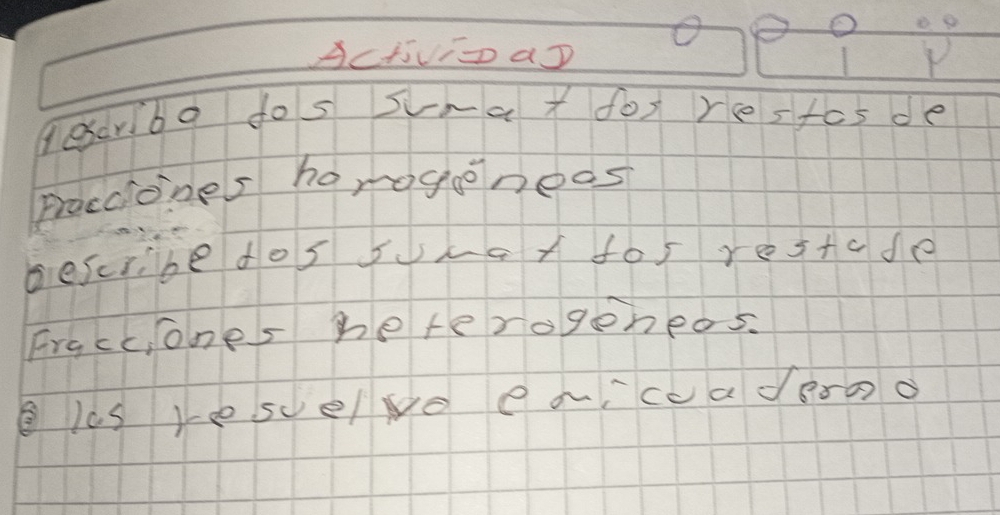 ActiviDaD
1 escribo dos suma y dos restas de
Fracciones homogéneas
Describe dos suma y dos resta de
Fracciones heterogéneos.
3 las resuelvo e mi cuaderno